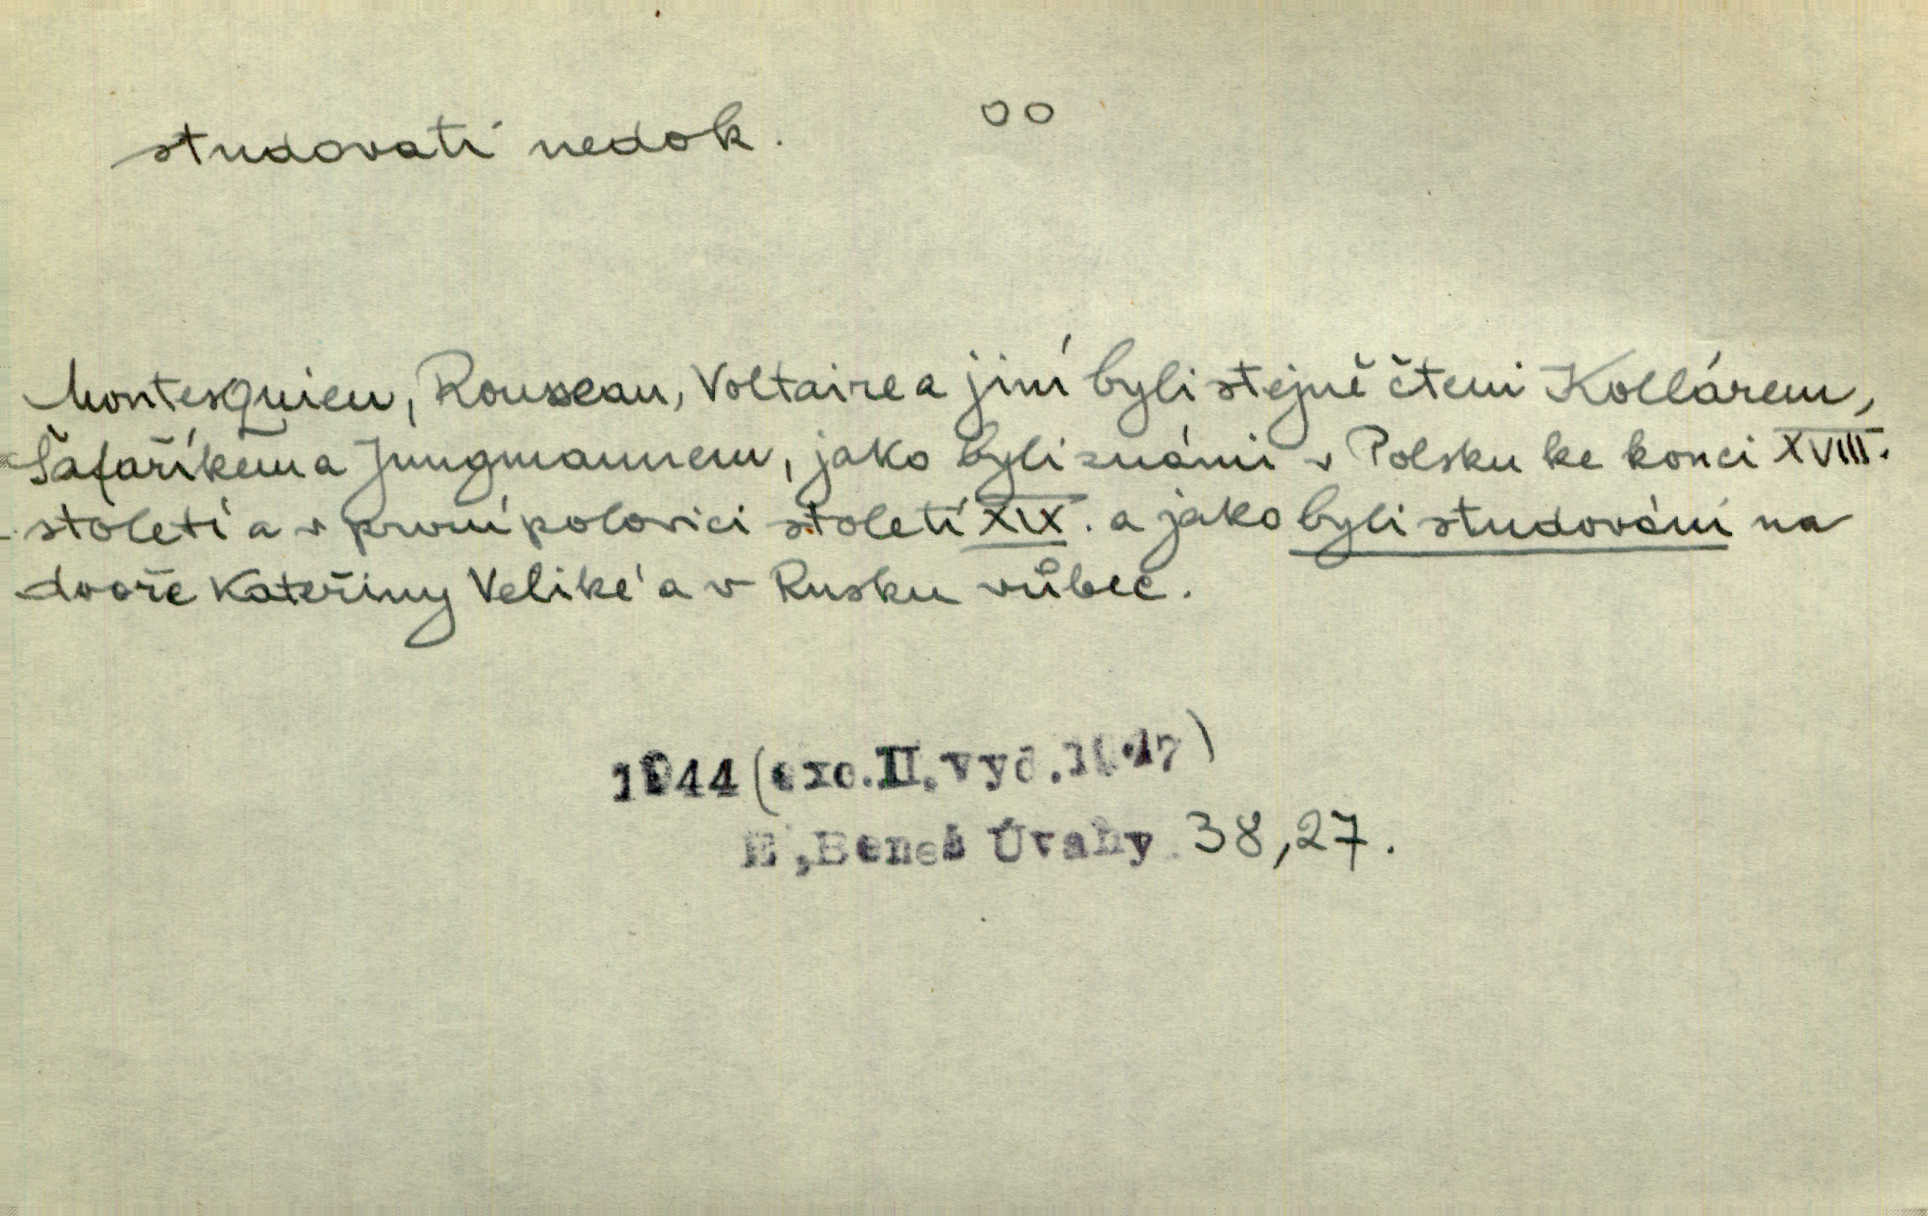 studovati nedok. oo
Montesquieu, Rousseau, Voltaire a jiní byli stejně čteni Kollárem,
Šafaříkem a Jungmannem, jako byli známi v Polsku ke konci XVIII.
století a v první polovici století XIX. a jako byli studováni na
dvoře Kateřiny Veliké a v Rusku vůbec.
1944 (exc. II. vyd. 1947)
E, Beneš Úvahy 38,27.